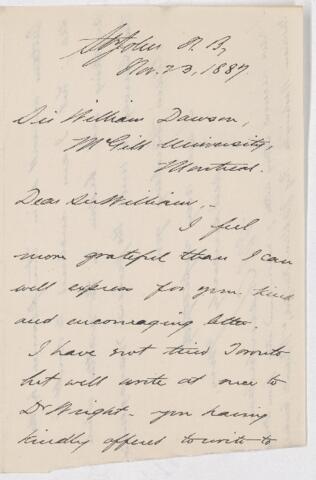 St John N. B,
Nov. 23, 1887.
Sir William Dawson,
McGill University,
Montreal.
Dear Sir William,-
I feel
more grateful than I can
well express for your kind
and encouraging letter.
I have not tried Toronto
but will write at once to
Dr Wright - you having
kindly offered to write to